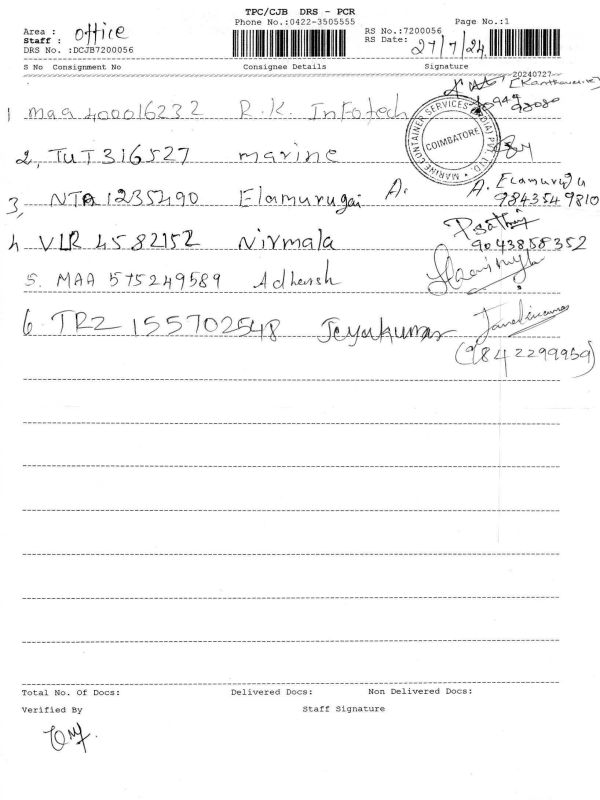 TPC/CJB DRS - PCR
Phone No.:0422-3505555 Page No.:1
Area : office
Staff :
DRS No. :DCJB7200056
RS No.:7200056
RS Date: 27/7/24
S No Consignment No Consignee Details Signature
20240727
1 maa 400016232 R.K. Infotech
MARINE CONTAINER SERVICES (INDIA) PVT. LTD.
COIMBATORE
2, TUT 316527 marine
3, NTA 1235490 Elamurugai A. A. Elamurugu
9843549810
4 VLR 4582152 Nirmala
9043858352
5. MAA 575249589 Adharsh
6. TRZ 155702548 Jeyakumar
(9842299959)
Total No. Of Docs: Delivered Docs: Non Delivered Docs:
Verified By Staff Signature